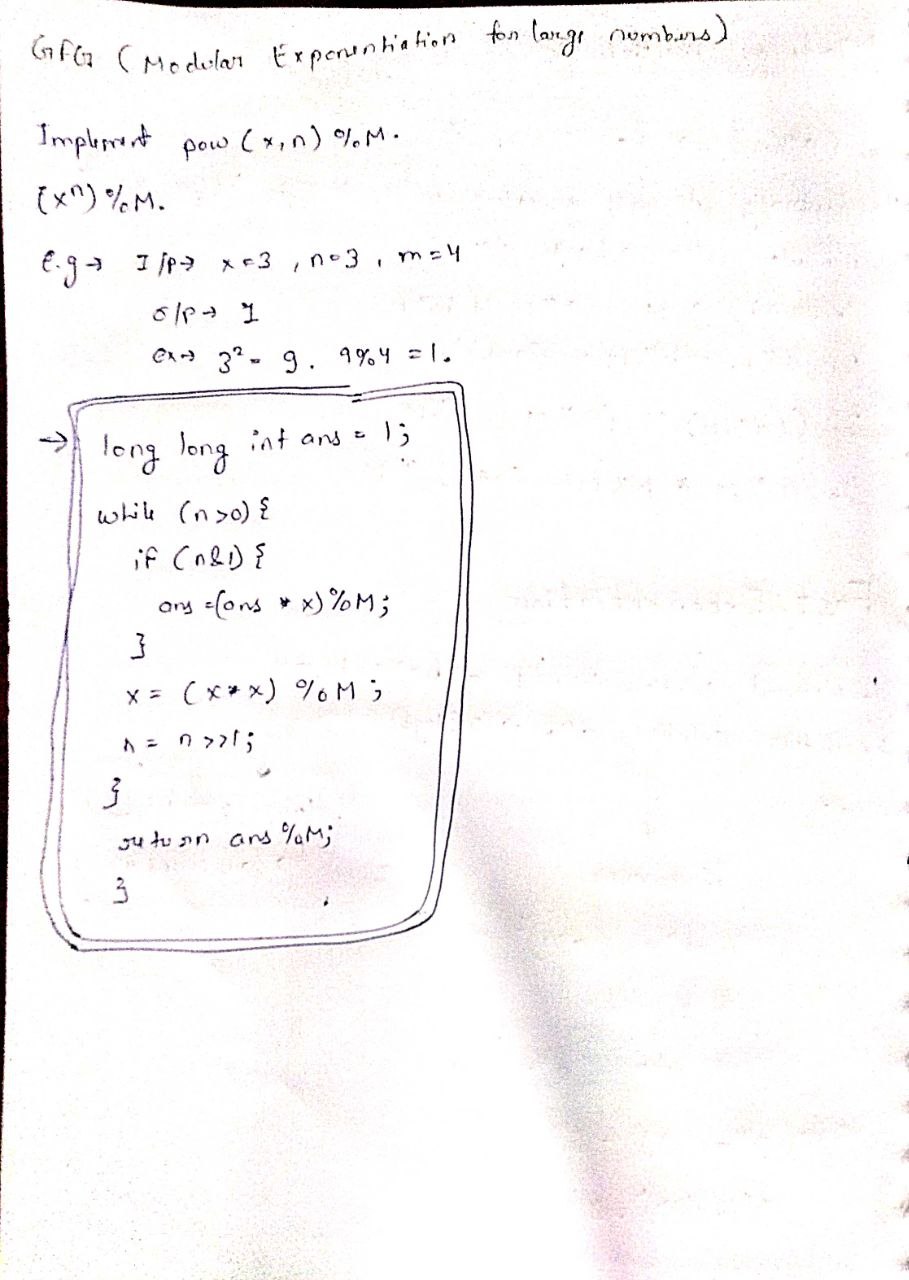 GFG (Modular Exponentiation for large numbers)
Implement pow (x,n) %M.
(x^n) %M.
E.g → I/p → x=3 , n=3 , m=4
o/p → 1
ex → 3² = 9. 9%4 =1.
→ long long int ans = 1;
while (n>0) {
if (n&1) {
ans =(ans * x) %M;
}
x = (x*x) %M ;
n = n >>1;
}
return ans %M;
}